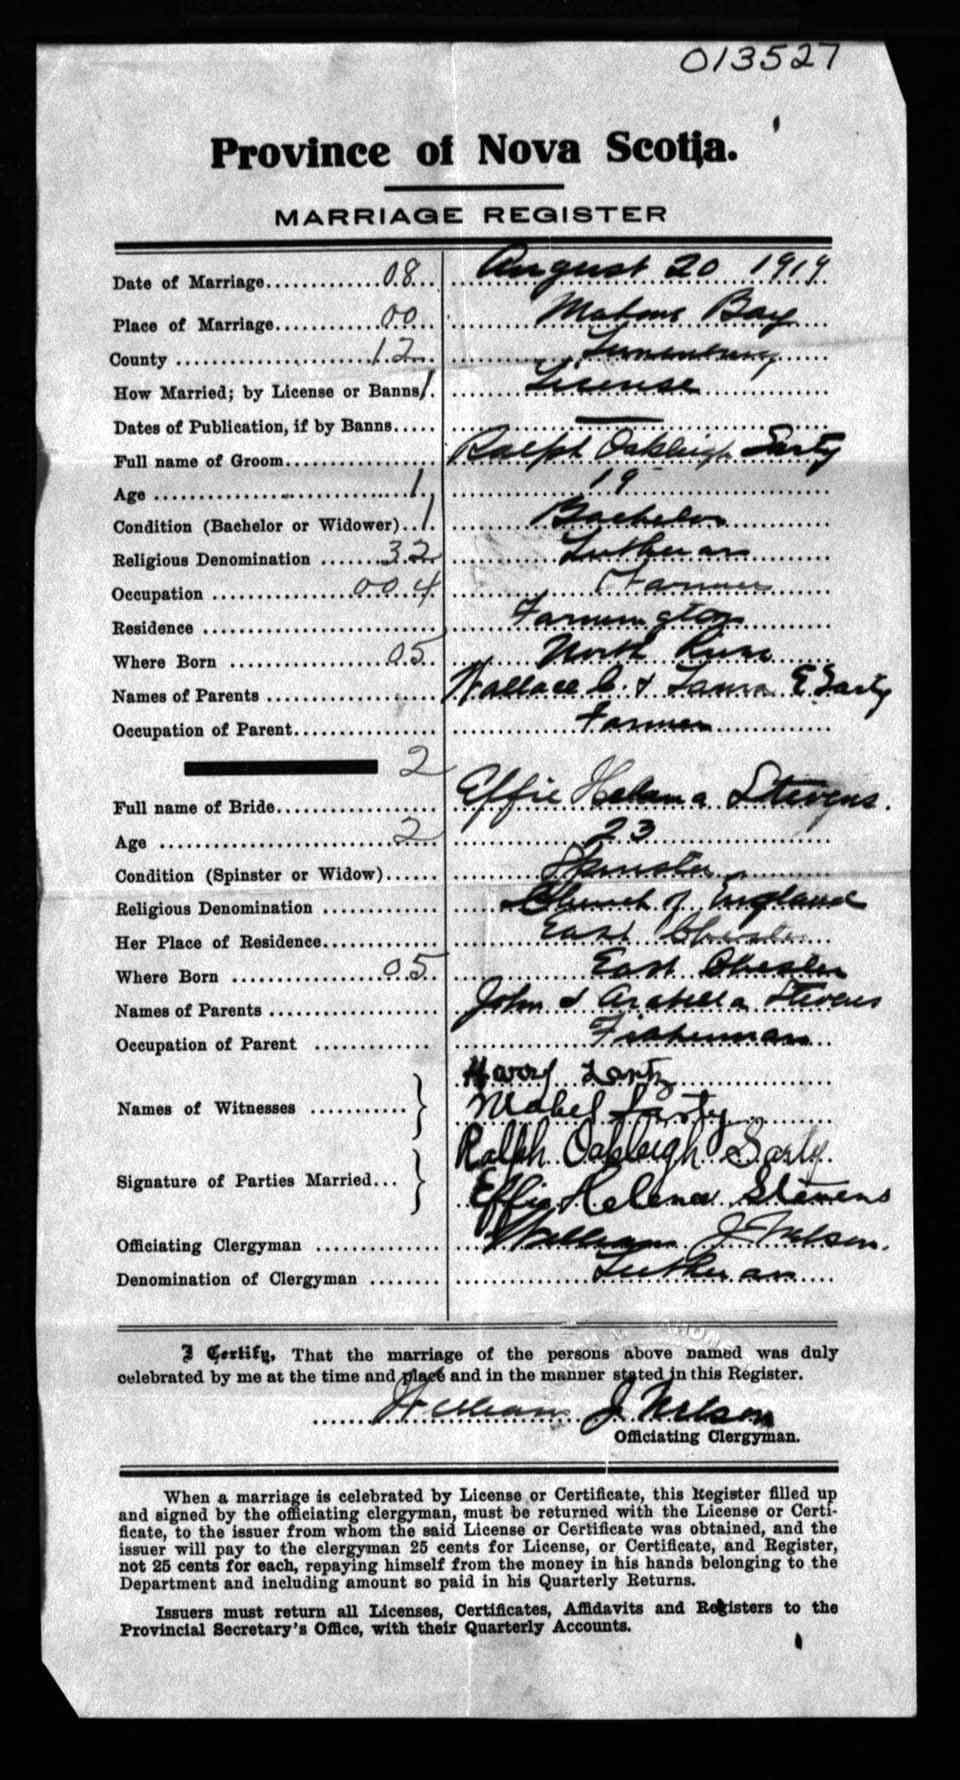 013527
Province of Nova Scotia.
MARRIAGE REGISTER
Date of Marriage.............08... August 20 1919
Place of Marriage............00... Mahone Bay
County ....................12... Lunenburg
How Married; by License or Banns/. License
Dates of Publication, if by Banns..... —
Full name of Groom.................. Ralph Oakleigh Sarty
Age ..............................1. 19
Condition (Bachelor or Widower)..1. Bachelor
Religious Denomination .......32.. Lutheran
Occupation ................00 4 Farmer
Residence ........................... Farmington
Where Born ..................05. North River
Names of Parents .................... Wallace C. & Laura E Sarty
Occupation of Parent................. Farmer
2
Full name of Bride................... Effie Helena Stevens.
Age .............................2.. 23
Condition (Spinster or Widow)...... Spinster
Religious Denomination ............. Church of England
Her Place of Residence............. East Chester
Where Born ..................05. East Chester
Names of Parents ................... John & Arabella Stevens
Occupation of Parent ............. Fisherman
Harry
Names of Witnesses ........... Mabel Sarty
Ralph Oakleigh Sarty.
Signature of Parties Married...
Effie Helena Stevens
Officiating Clergyman ............. William J. Nelson.
Denomination of Clergyman ........ Lutheran
I Certify, That the marriage of the persons above named was duly
celebrated by me at the time and place and in the manner stated in this Register.
William J. Nelson
Officiating Clergyman.
When a marriage is celebrated by License or Certificate, this Register filled up
and signed by the officiating clergyman, must be returned with the License or Certi-
ficate, to the issuer from whom the said License or Certificate was obtained, and the
issuer will pay to the clergyman 25 cents for License, or Certificate, and Register,
not 25 cents for each, repaying himself from the money in his hands belonging to the
Department and including amount so paid in his Quarterly Returns.
Issuers must return all Licenses, Certificates, Affidavits and Registers to the
Provincial Secretary's Office, with their Quarterly Accounts.